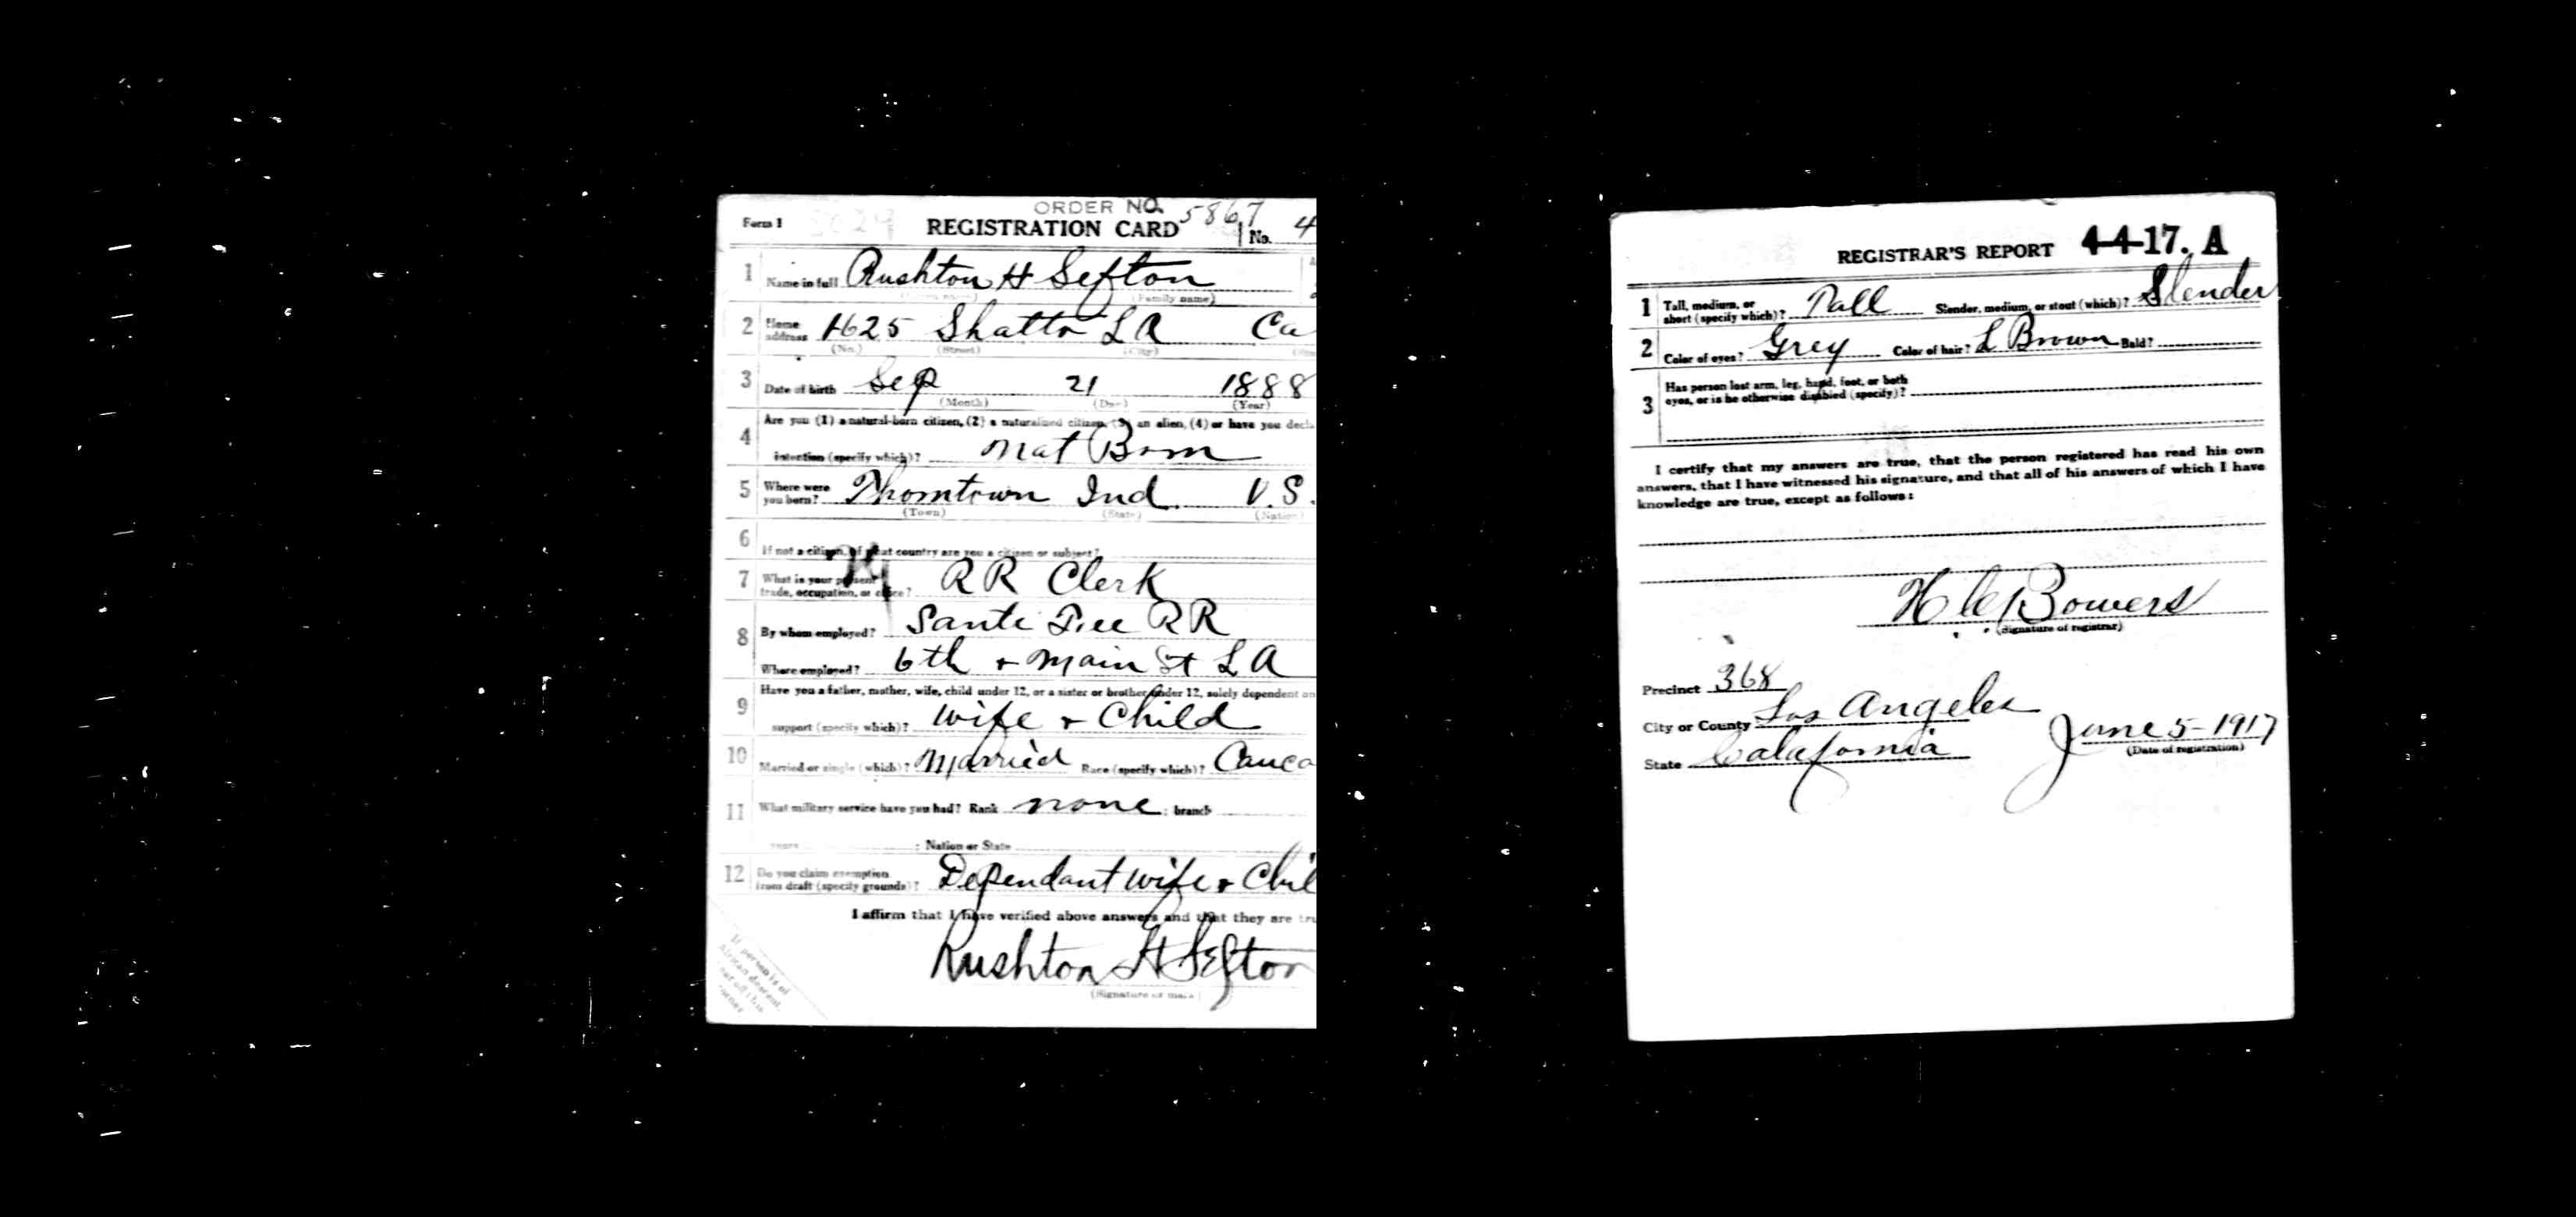 ORDER NO. 5867
Form 1 REGISTRATION CARD No. 4
1 Name in full Rushton H Sefton
(Family name)
2 Home address 1625 Shatto LA Ca
(No.) (Street) (City)
3 Date of birth Sep 21 1888
(Month) (Day) (Year)
4 Are you (1) a natural-born citizen, (2) a naturalized citizen, (3) an alien, (4) or have you decl
intention (specify which)? Nat Born
5 Where were you born? Thorntown Ind. U.S.
(Town) (State) (Nation)
6 If not a citizen, of what country are you a citizen or subject?
7 What is your present trade, occupation, or office? RR Clerk
8 By whom employed? Sante Fee RR
Where employed? 6th + Main St LA
9 Have you a father, mother, wife, child under 12, or a sister or brother under 12, solely dependent on
support (specify which)? wife + Child
10 Married or single (which)? Married Race (specify which)? Cauca
11 What military service have you had? Rank none ; branch
years ; Nation or State
12 Do you claim exemption from draft (specify grounds)? Dependant wife + Chil
I affirm that I have verified above answers and that they are tru
Rushton H Sefton
(Signature or mark)
If person is of
African descent,
corner
REGISTRAR'S REPORT 4-4-17. A
1 Tall, medium, or short (specify which)? Tall Slender, medium, or stout (which)? Slender
2 Color of eyes? Grey Color of hair? L Brown Bald?
3 Has person lost arm, leg, hand, foot, or both
eyes, or is he otherwise disabled (specify)?
I certify that my answers are true, that the person registered has read his own
answers, that I have witnessed his signature, and that all of his answers of which I have
knowledge are true, except as follows:
H C Bowers
(Signature of registrar)
Precinct 368
City or County Los Angeles
State Calafornia
June 5-1917
(Date of registration)